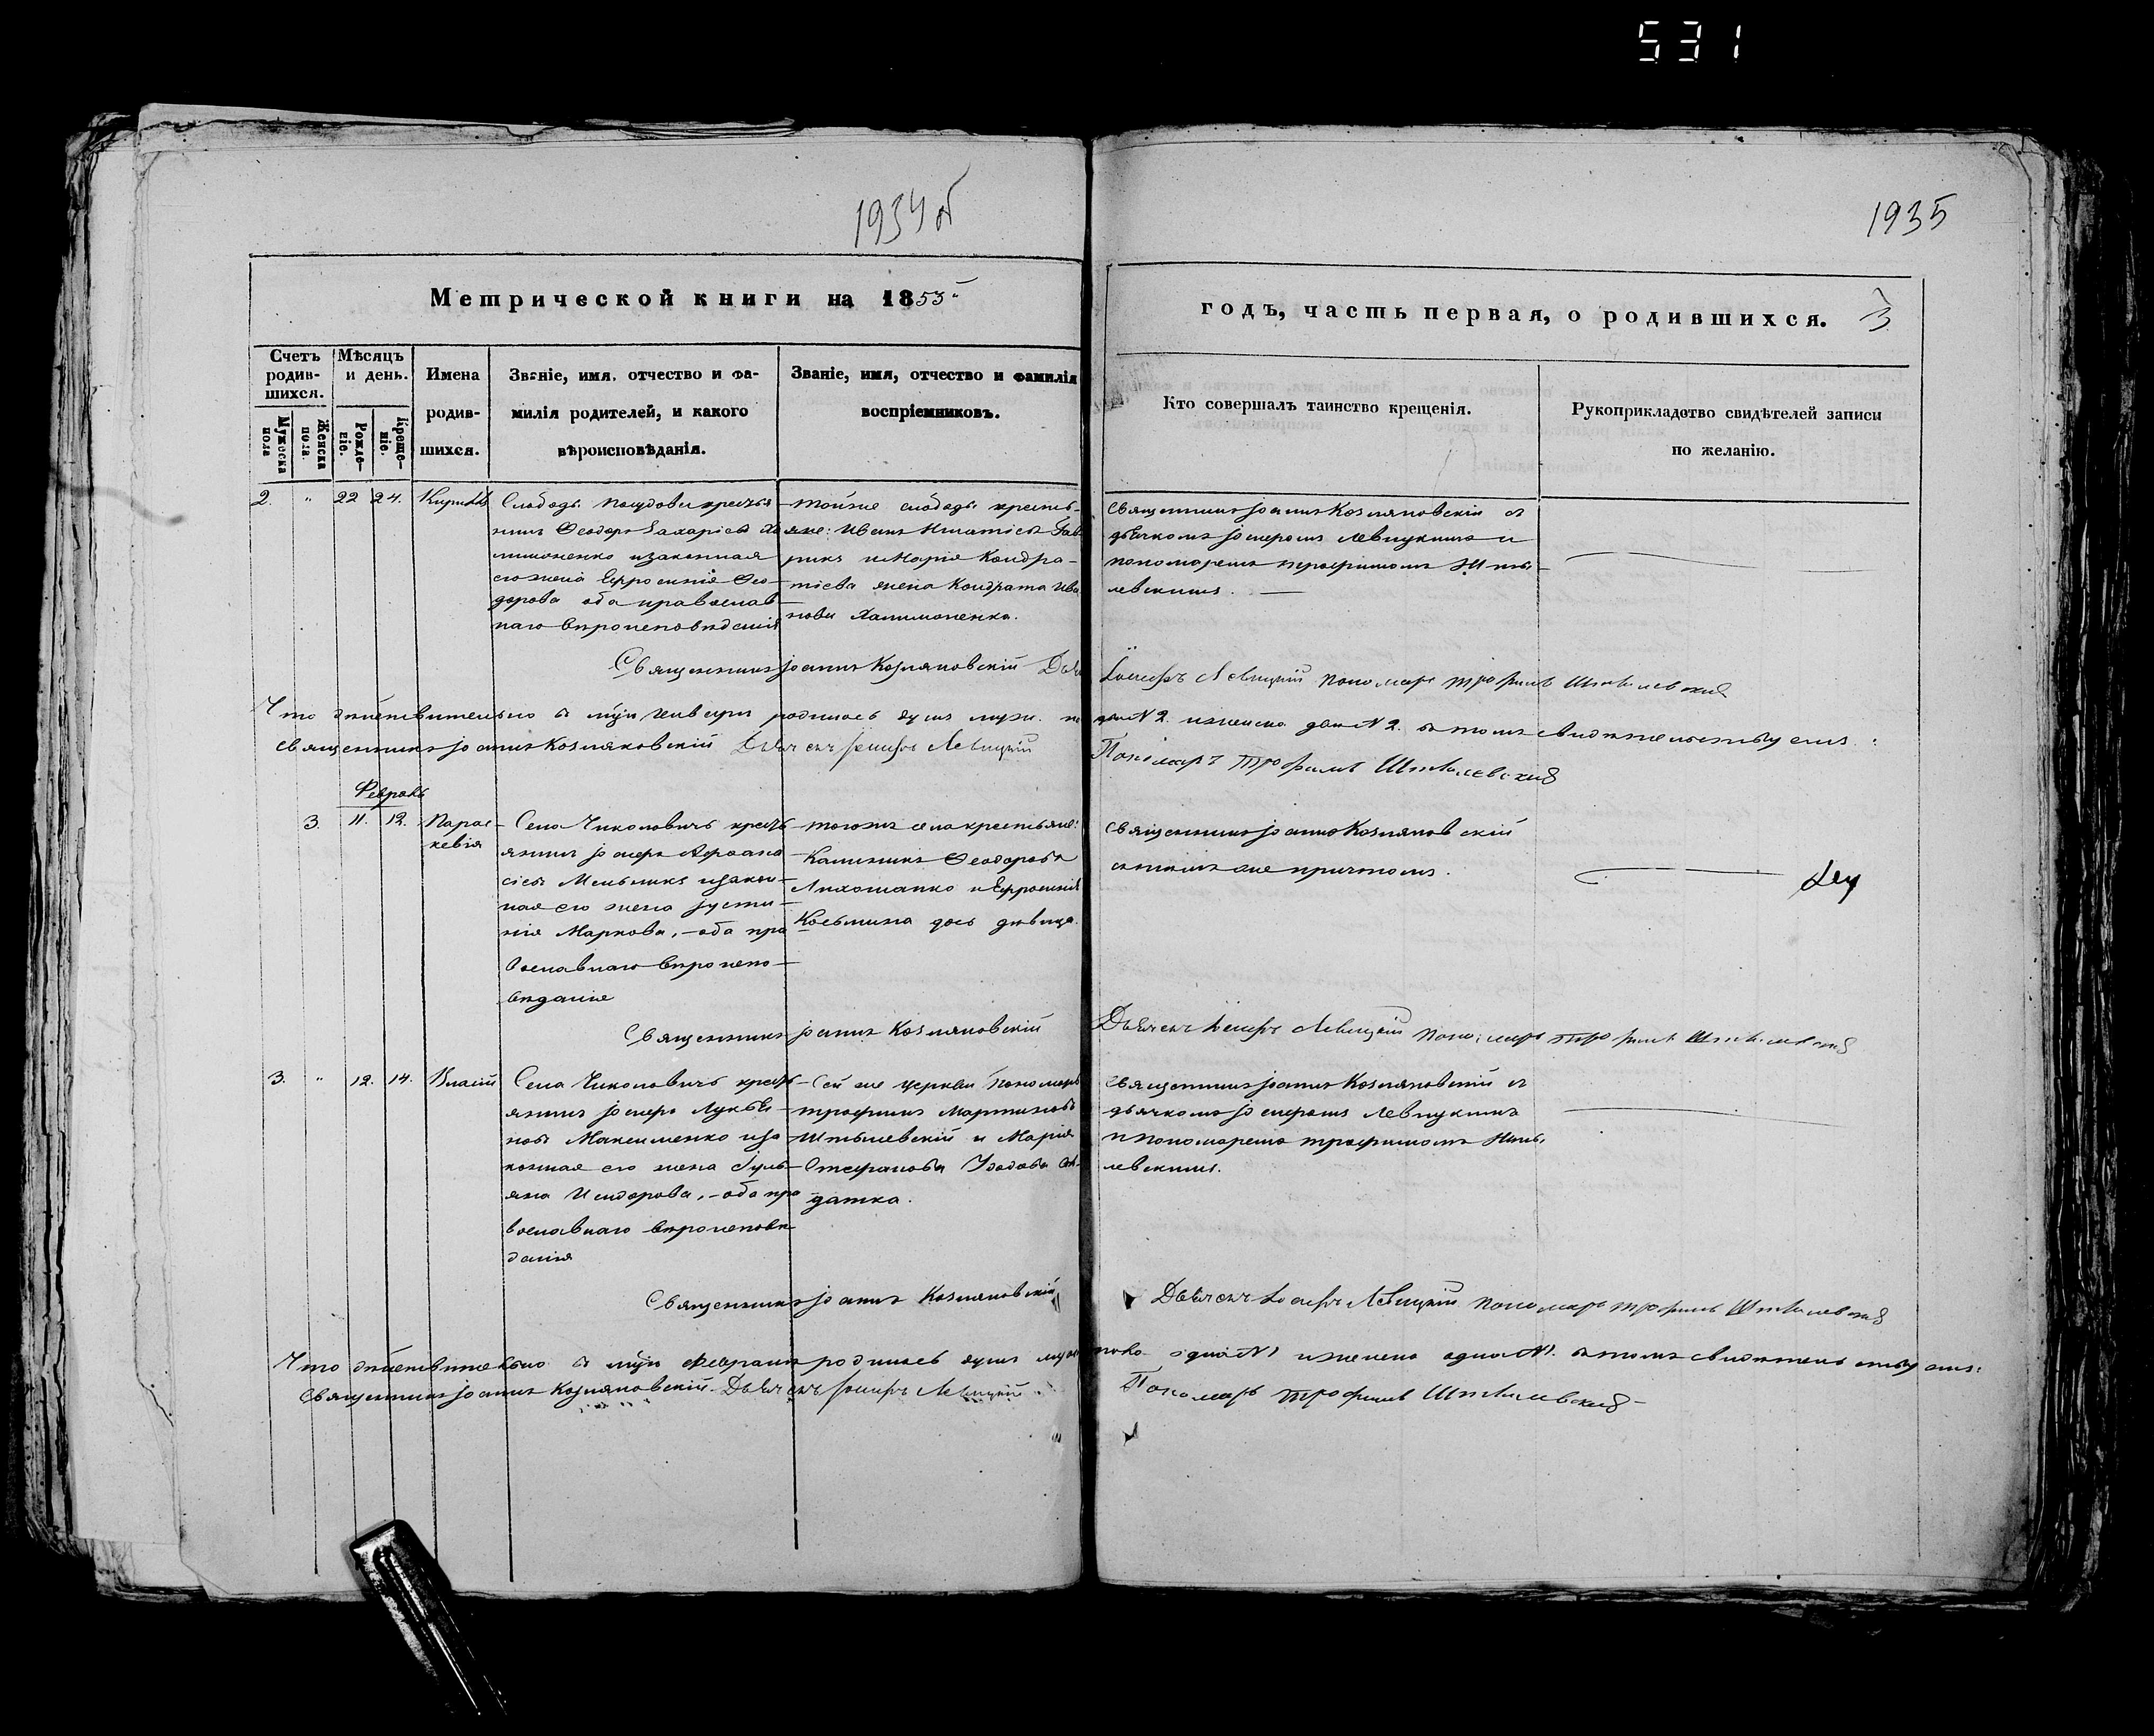 531
1934 об
1935
Метрической книги на 1853
годъ, часть первая, о родившихся. 3
Счетъ родив-шихся.
Мѣсяцъ и день.
Имена родив-шихся.
Званіе, имя, отчество и фа-
милія родителей, и какого
вѣроисповѣданія.
Званіе, имя, отчество и фамилія
воспріемниковъ.
Кто совершалъ таинство крещенія.
Рукоприкладство свидѣтелей записи
по желанію.
Мужеска пола
Женска пола.
Рожде-ніе.
Креще-ніе.
2. " 22 24. Кириллъ
Слободы крестья
нинъ Феодоръ Захаріевъ Ха
лимоненко и законная
его жена Евфросинія Фео-
дорова оба православ
наго вѣроисповѣданія
тойже слободы крестья-
яне: Иванъ Игнатіевъ Гав
рикъ и Марія Кондра-
тіева жена Кондрата Ива
нова Халимоненка.
Священникъ Іоаннъ Козляновскій съ
дьячкомъ Іосифомъ Левицкимъ и
пономаремъ Трофимомъ
левскимъ.
Священникъ Іоаннъ Козляновскій Дья
Іосифъ Левицкій Пономарь Трофимъ
Что дѣйствительно въ м҃цѣ Генварѣ родилось душъ муж. по
два № 2. и женска два № 2. въ томъ свидѣтельствуемъ:
Священникъ Іоаннъ Козляновскій Дьячекъ Іосифъ Левицкій
Пономарь Трофимъ
Февраль
3. 11. 12. Парас-
кевія
Села Чиколовичъ кресть
янинъ Іосифъ Афана
сіевъ Мельникъ и закон-
ная его жена Іусти-
нія Маркова, - оба пра
вославнаго вѣроиспо-
вѣданія
тогожъ села крестьяне:
Калинникъ Феодоровъ
и Евфросинія
Косьмина дочь дѣвица.
Священникъ Іоаннъ Козляновскій
съ тѣмъ же причтомъ.
Священникъ Іоаннъ Козляновскій
Дьячекъ Іосифъ Левицкій Пономарь Трофимъ
3. " 12. 14. Власій
Села Чиколовичъ кресть
янинъ Іосифъ Лукья-
новъ Максименко и за
конная его жена Іуль-
яна Исидорова, - оба пра
вославнаго вѣроисповѣ
данія
Сей же церкви Пономарь
Трофимъ Мартиновъ
и Марія
Стефанова Удодова сол-
датка.
Священникъ Іоаннъ Козляновскій съ
дьячкомъ Іосифомъ Левицкимъ
и пономаремъ Трофимомъ
левскимъ.
Священникъ Іоаннъ Козляновскій
Дьячекъ Іосифъ Левицкій Пономарь Трофимъ
Что дѣйствительно въ м҃цѣ Февралѣ родилось душъ муже
пола одна № 1 и женска одна № 1. въ томъ свидѣтельствуемъ:
Священникъ Іоаннъ Козляновскій Дьячекъ Іосифъ Левицкій
Пономарь Трофимъ